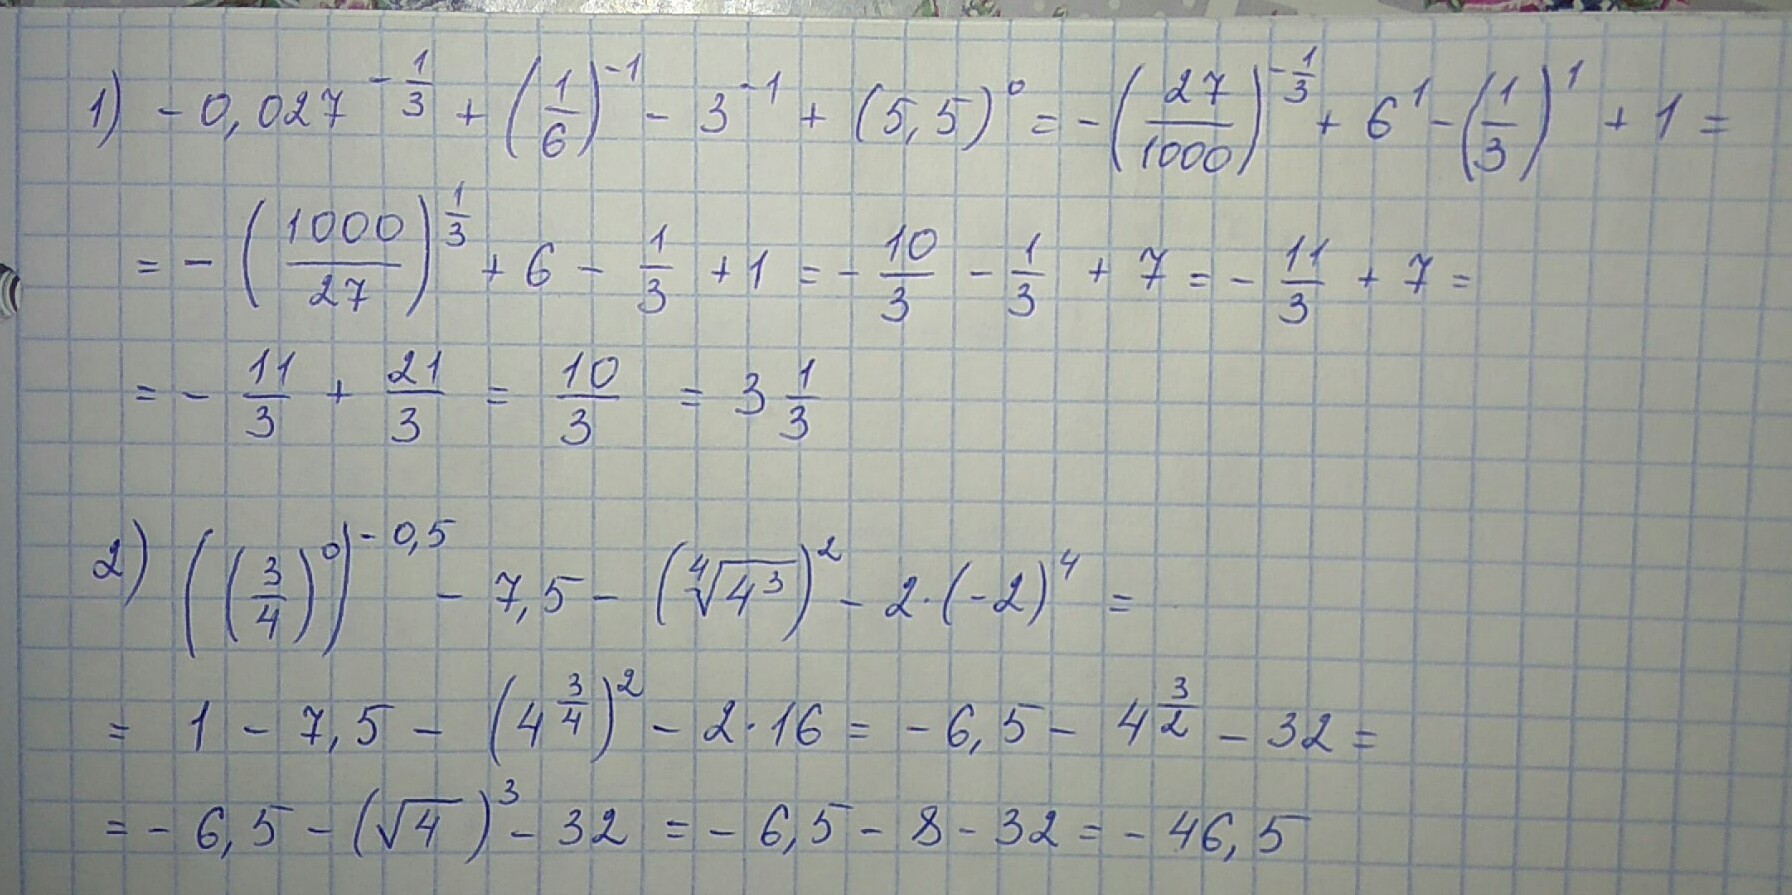 1) -0,027^(-1/3) + (1/6)^(-1) - 3^(-1) + (5,5)^0 = -(27/1000)^(-1/3) + 6^1 - (1/3)^1 + 1 =
= -(1000/27)^(1/3) + 6 - 1/3 + 1 = -10/3 - 1/3 + 7 = -11/3 + 7 =
= -11/3 + 21/3 = 10/3 = 3 1/3
2) ((3/4)^0)^(-0,5) - 7,5 - (⁴√4³)² - 2·(-2)^4 =
= 1 - 7,5 - (4^(3/4))² - 2·16 = -6,5 - 4^(3/2) - 32 =
= -6,5 - (√4)³ - 32 = -6,5 - 8 - 32 = -46,5